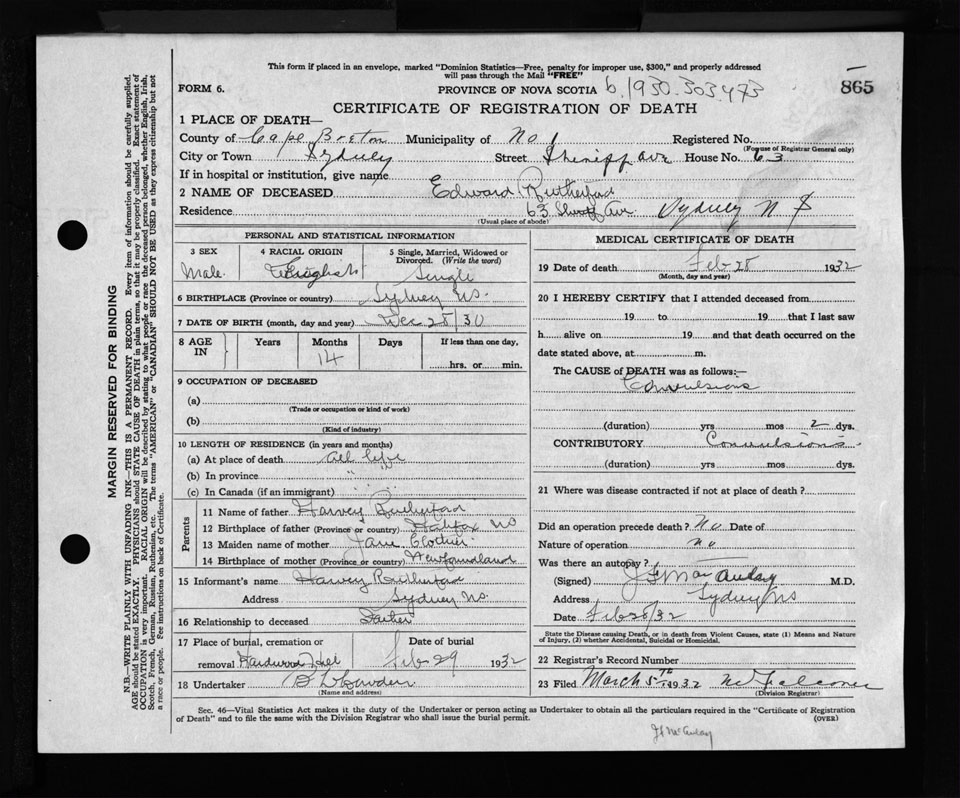 This form if placed in an envelope, marked "Dominion Statistics—Free, penalty for improper use, $300," and properly addressed
will pass through the Mail "FREE"
FORM 6.
PROVINCE OF NOVA SCOTIA b.1930.303.473
865
CERTIFICATE OF REGISTRATION OF DEATH
1 PLACE OF DEATH—
County of Cape Breton Municipality of No 1 Registered No.
(For use of Registrar General only)
City or Town Sydney Street Sheriff Ave House No. 63
If in hospital or institution, give name
2 NAME OF DECEASED Edward Rutherford
Residence 63 Sheriff Ave Sydney N S
(Usual place of abode)
PERSONAL AND STATISTICAL INFORMATION
3 SEX
Male
4 RACIAL ORIGIN
English
5 Single, Married, Widowed or
Divorced. (Write the word)
Single
6 BIRTHPLACE (Province or country) Sydney NS.
7 DATE OF BIRTH (month, day and year) Dec 28/30
8 AGE IN
Years Months Days If less than one day,
14
hrs. or min.
9 OCCUPATION OF DECEASED
(a)
(Trade or occupation or kind of work)
(b)
(Kind of industry)
10 LENGTH OF RESIDENCE (in years and months)
(a) At place of death all life
(b) In province "
(c) In Canada (if an immigrant)
Parents
11 Name of father Harvey Rutherford
12 Birthplace of father (Province or country) Halifax NS
13 Maiden name of mother Jane
14 Birthplace of mother (Province or country) Newfoundland
15 Informant's name Harvey Rutherford
Address Sydney NS.
16 Relationship to deceased Father
17 Place of burial, cremation or Date of burial
removal Hardwood Hill Feb 29 1932
18 Undertaker
(Name and address)
MEDICAL CERTIFICATE OF DEATH
19 Date of death Feb 28 1932
(Month, day and year)
20 I HEREBY CERTIFY that I attended deceased from
19 to 19 that I last saw
h alive on 19 and that death occurred on the
date stated above, at m.
The CAUSE of DEATH was as follows:—
Convulsions
(duration) yrs mos 2 dys.
CONTRIBUTORY Convulsions
(duration) yrs mos dys.
21 Where was disease contracted if not at place of death?
Did an operation precede death? No Date of
Nature of operation no
Was there an autopsy?
(Signed) M.D.
Address Sydney NS
Date Feb 28/32
State the Disease causing Death, or in death from Violent Causes, state (1) Means and Nature
of Injury, (2) whether Accidental, Suicidal or Homicidal.
22 Registrar's Record Number
23 Filed March 5th 1932
(Division Registrar)
Sec. 46—Vital Statistics Act makes it the duty of the Undertaker or person acting as Undertaker to obtain all the particulars required in the "Certificate of Registration
of Death" and to file the same with the Division Registrar who shall issue the burial permit.
(OVER)
MARGIN RESERVED FOR BINDING
N.B.—WRITE PLAINLY WITH UNFADING INK—THIS IS A PERMANENT RECORD. Every item of information should be carefully supplied.
AGE should be stated EXACTLY. PHYSICIANS should STATE CAUSE OF DEATH in plain terms, so that it may be properly classified. Exact statement of
OCCUPATION is very important. RACIAL ORIGIN will be described by stating to what people or race the deceased person belonged, whether English, Irish,
Scotch, French, German, Russian, Ruthenian, etc. The terms "AMERICAN" or "CANADIAN" SHOULD NOT BE USED as they express citizenship but not
a race or people. See instructions on back of Certificate.